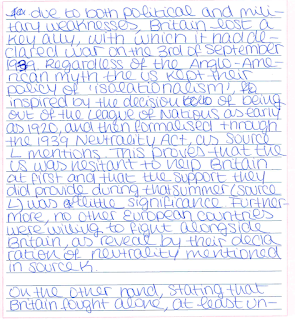 due to both political and mili-
tary weaknesses, Britain lost a
key ally, with which it had de-
clared war on the 3rd of September
1939. Regardless of the Anglo-Ame-
rican myth the US kept their
policy of 'isolationalism',
inspired by the decision of being
out of the League of Nations as early
as 1920, and then formalised through
the 1939 Neutrality Act, as source
L mentions. This proves that the
US was hesitant to help Britain
at first and that the support they
did provide during that summer (source
L) was of little significance. Further-
more, no other European countries
were willing to fight alongside
Britain, as reveal by their decla
ration of neutrality mentioned
in source K.
On the other hand, stating that
Britain fought alone, at least un-